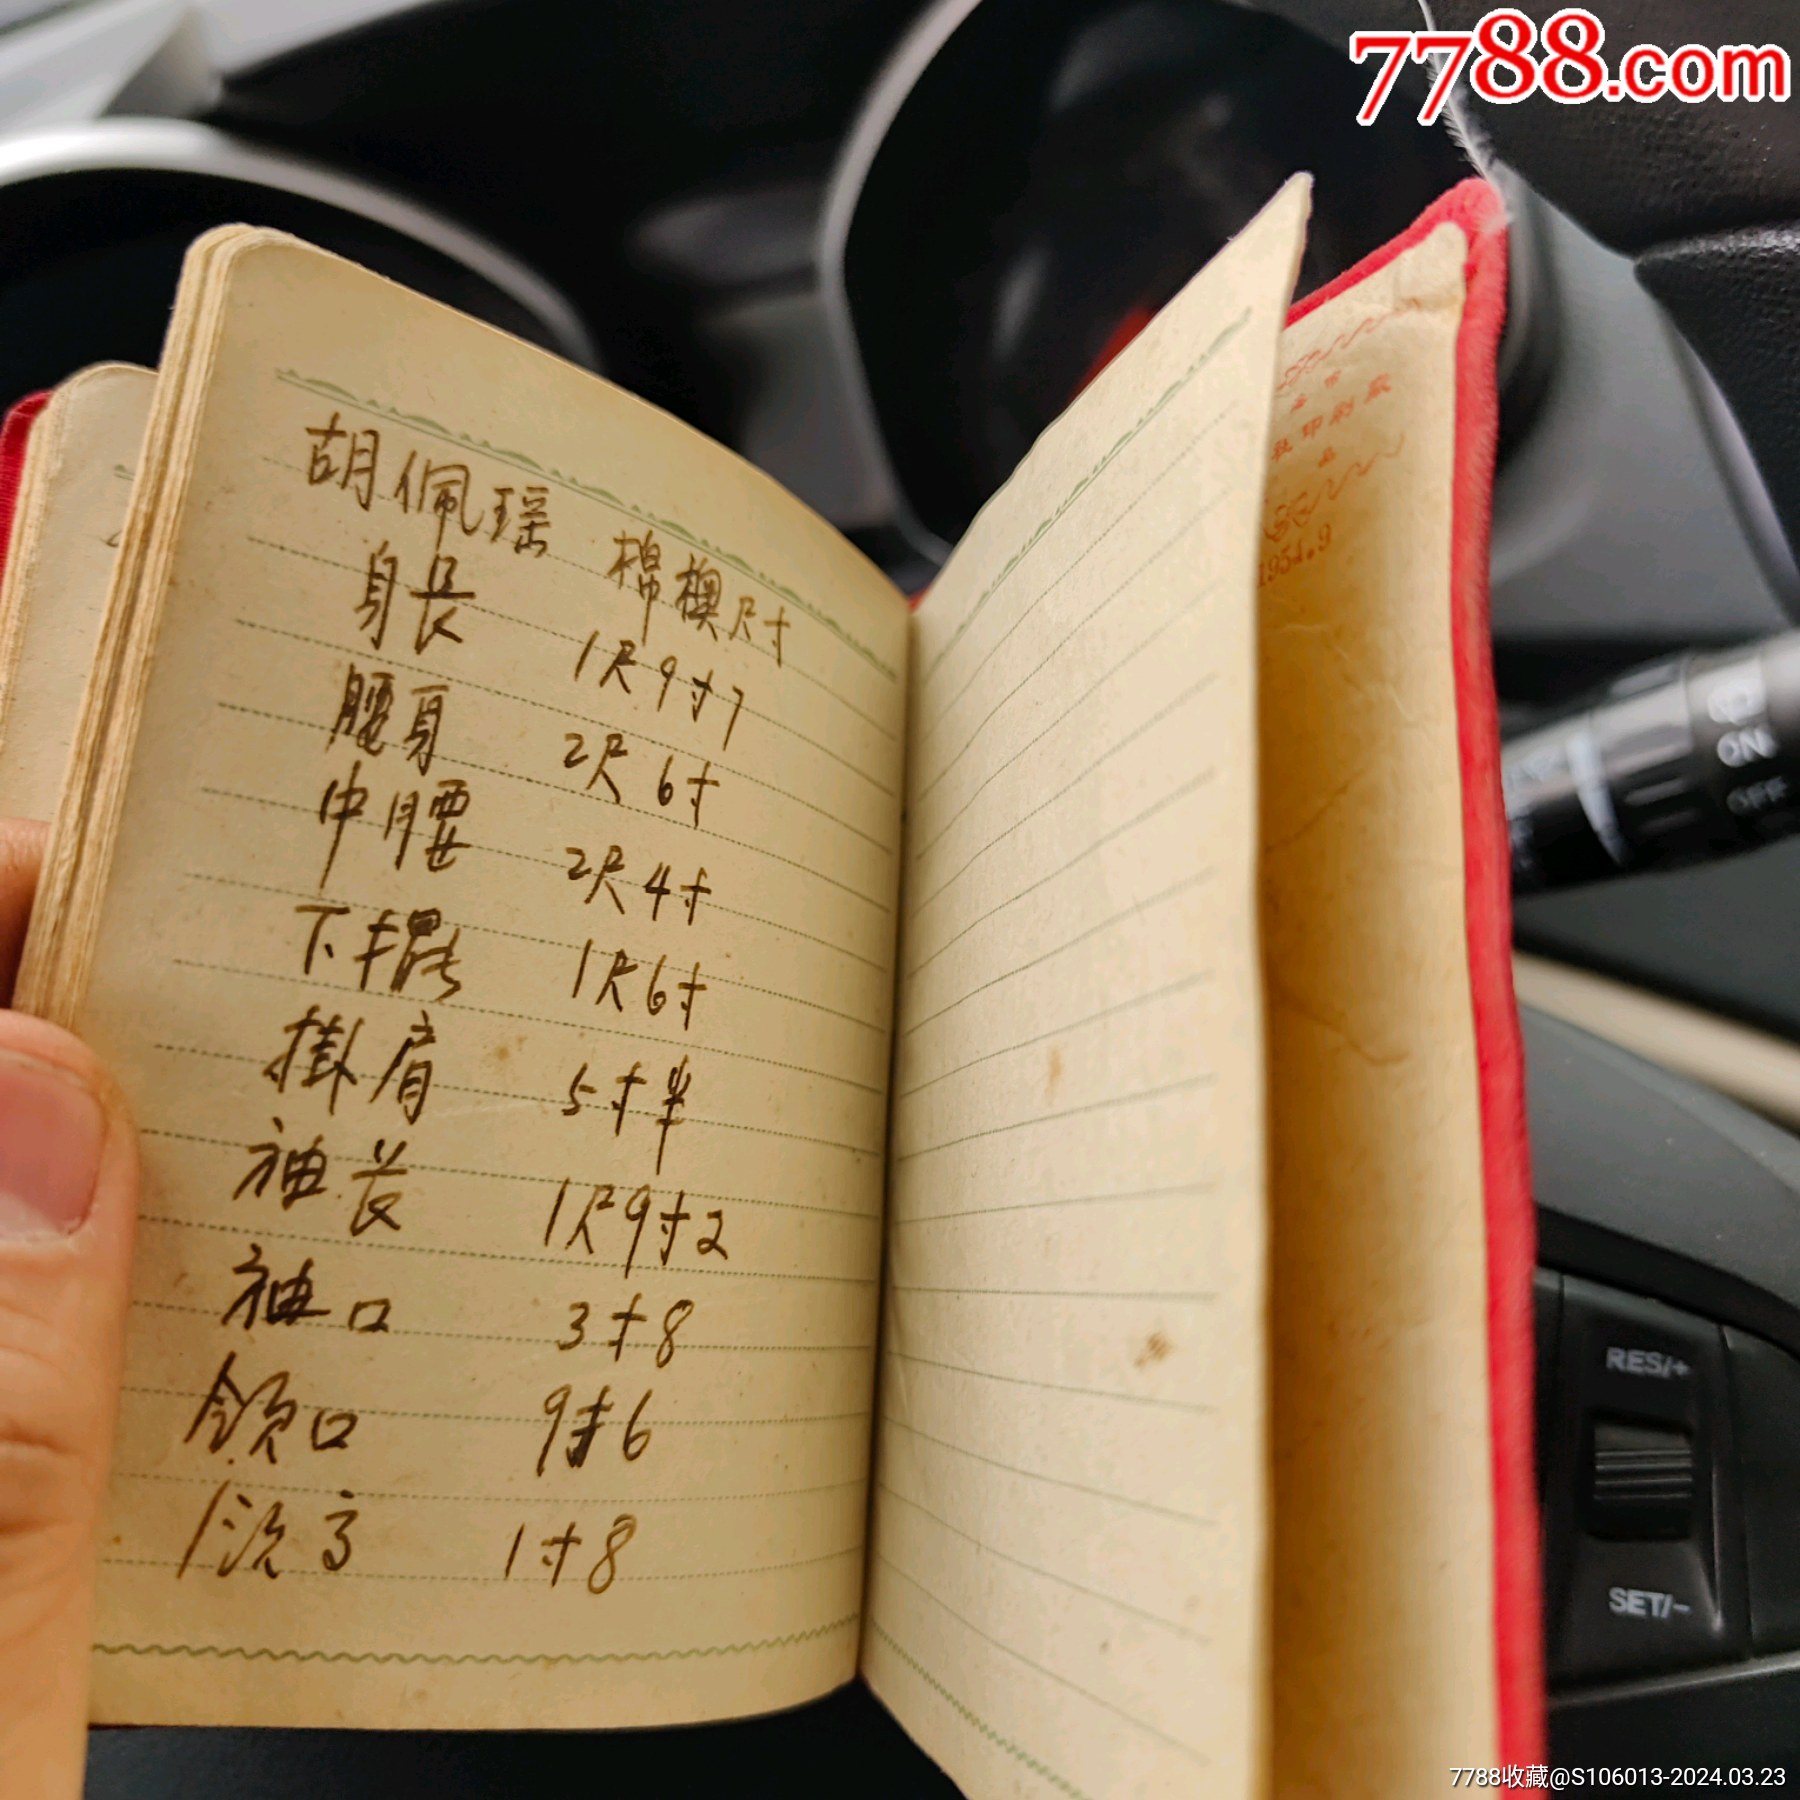 7788.com
胡佩瑶 棉樉尺寸
身長 1尺9寸7
腰身 2尺6寸
中腰 2尺4寸
下 1尺6寸
掛肩 5寸半
袖长 1尺9寸2
袖口 3寸8
領口 9寸6
高 1寸8
社印刷厰
品
1954.9
ON
OFF
RES/+
SET/-
7788收藏@S106013-2024.03.23